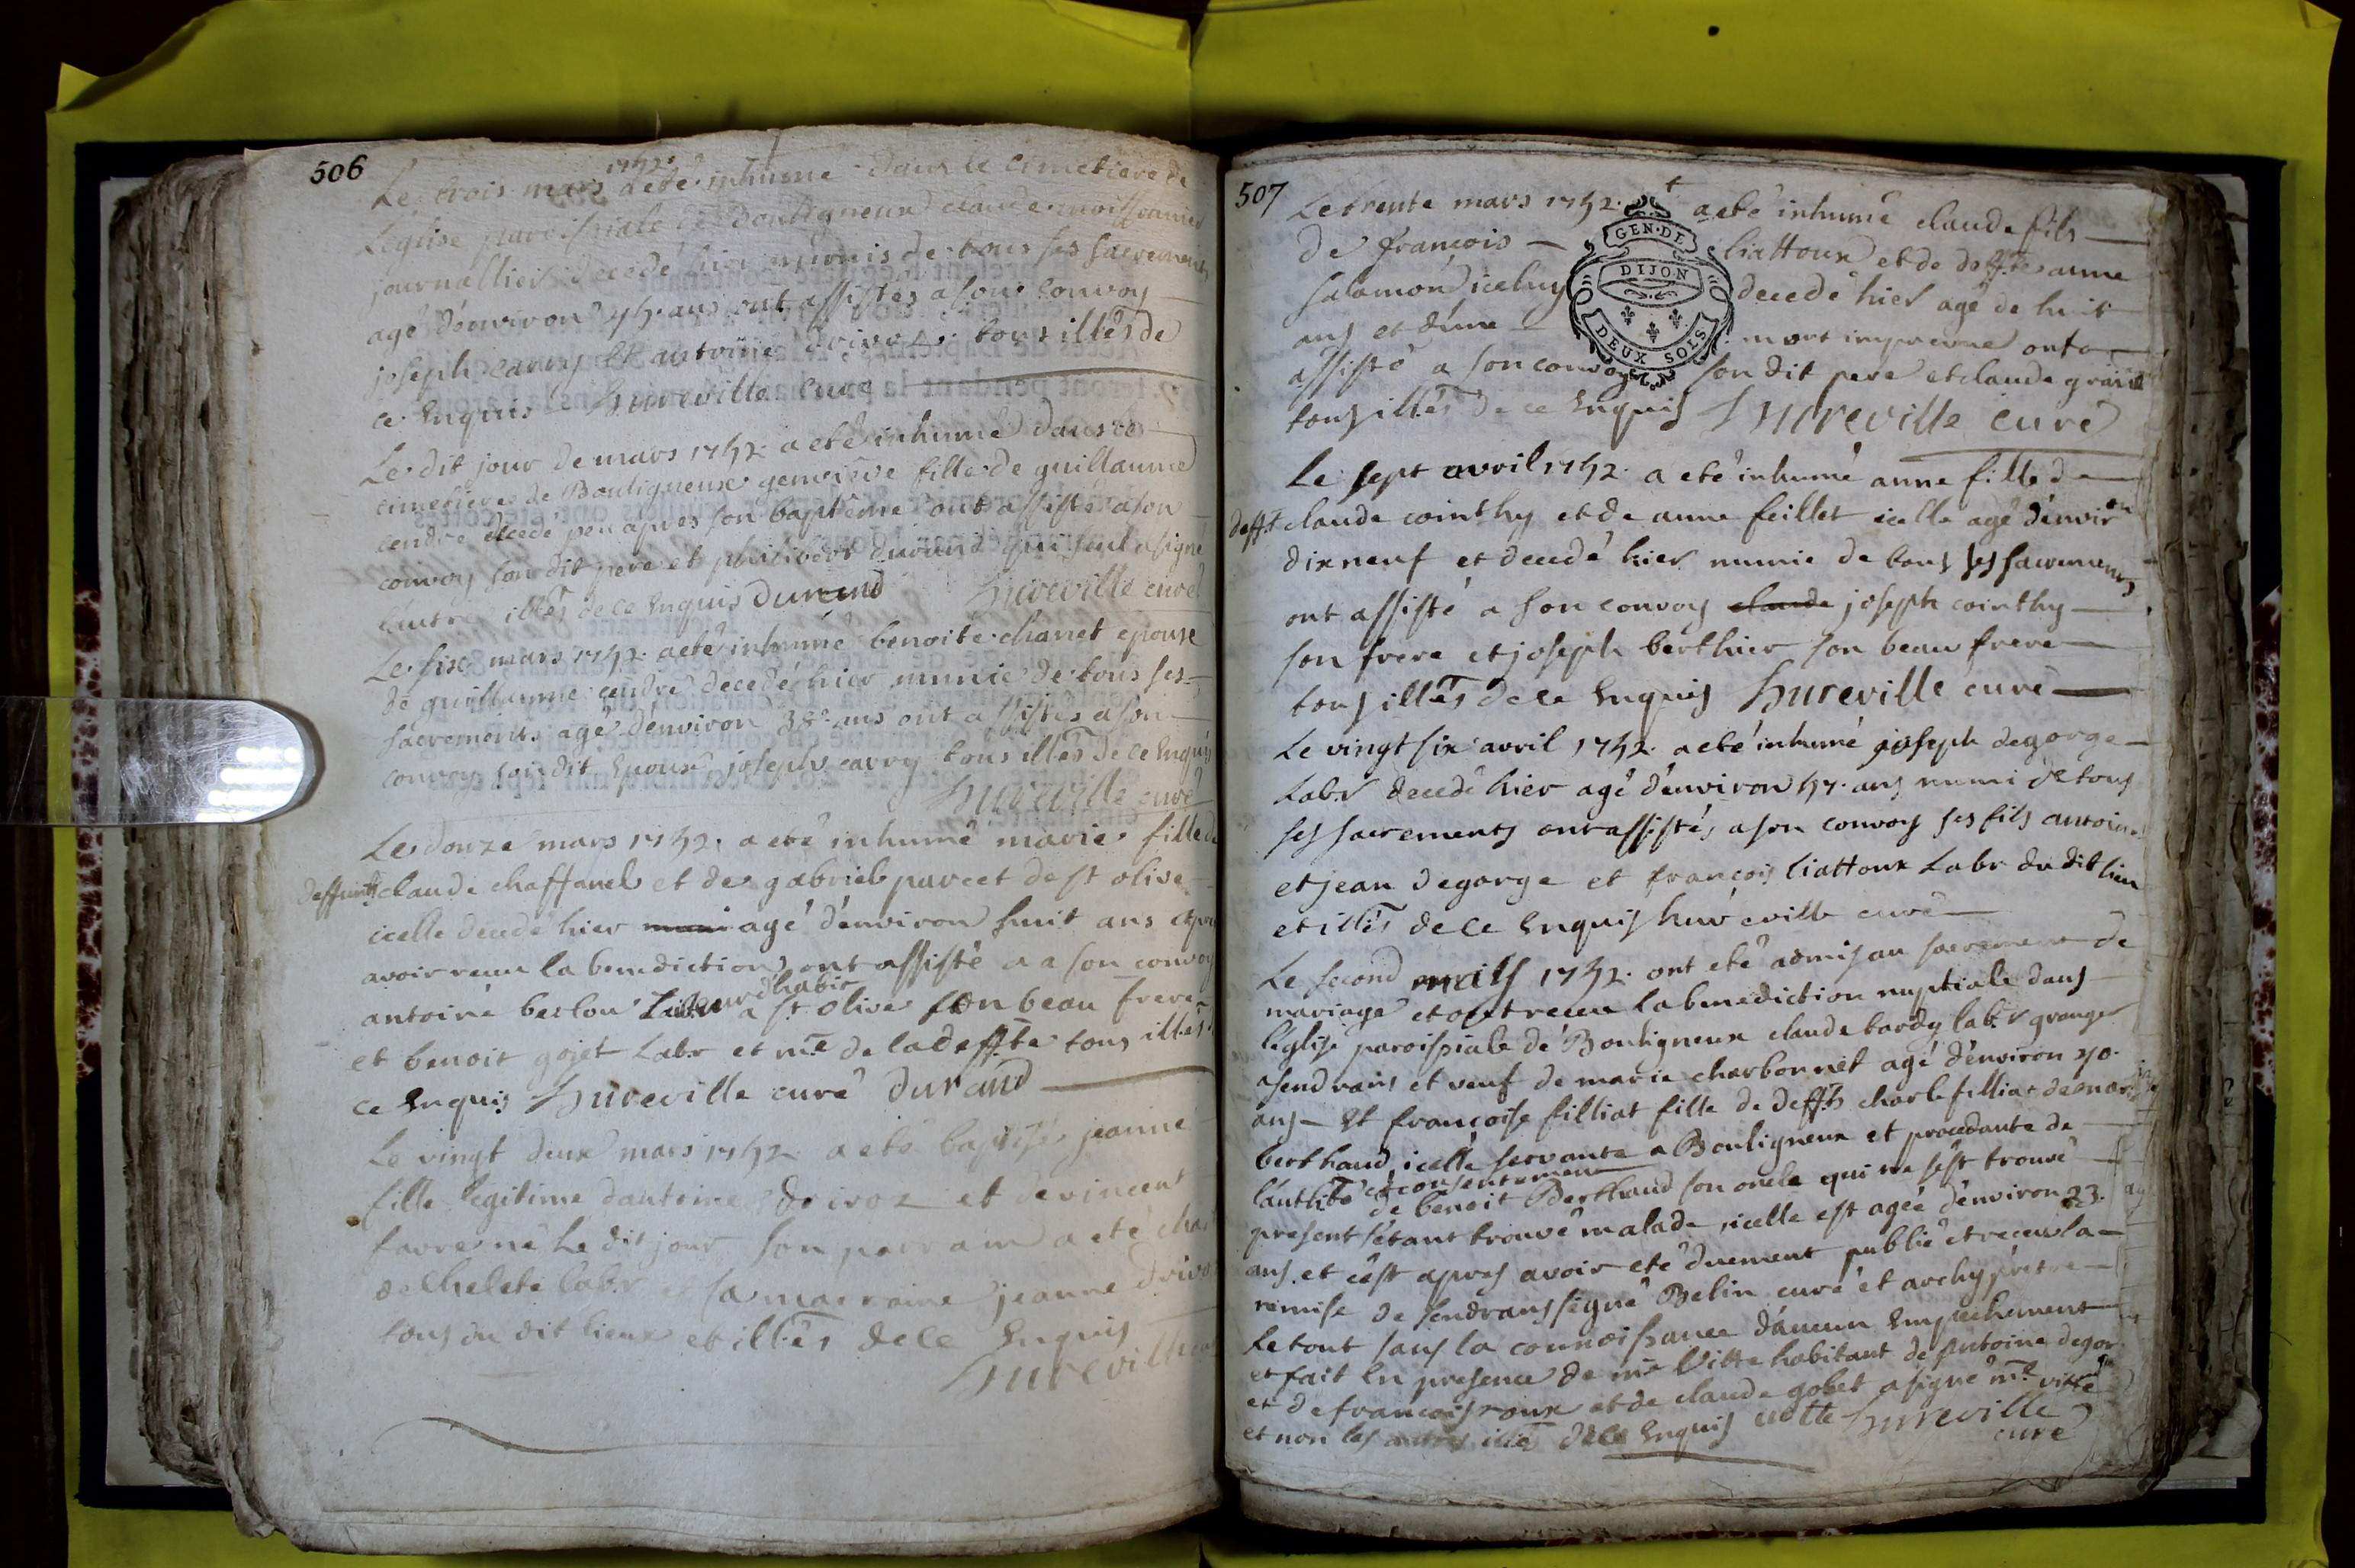 506
Le trois mars 1752 a eté inhumé dans le cimetiere de
L'eglise paroissiale de Bouligneux claude
journallier decedé hier munis de tous ses sacrements
agé d'environ 45. ans ont assistés a son convoy
joseph carry et antoine drivoz tous illés de
ce Enquis hureville curé
Le dit jour de mars 1752. a eté inhumé dans le
cimetiere de Bouligneux genvieve fille de guillaume
cendre decedé peu apres son baptême ont assisté a son
convoy son dit pere et philibert durand qui seul a signé
l'autre illés de ce Enquis Durand hureville curé
Le six mars 1752. a eté inhumé benoite chanet epouse
de guillaume cendre decedé hier munie de tous ses
sacrements agé d'environ 38. ans ont assistés a son
convoy son dit Epoux joseph carry tous illés de ce Enquis
hureville curé
Le douze mars 1752. a eté inhumé marie fille de
deffunts claude chaffanel et de gabriel purcet de st olive
icelle decedé hier agé d'environ huit ans apres
avoir receu la benediction ont assisté a a son convoy
antoine berlou Labeur d habit a st olive son beau frere
et benoit gojet Labr et me de la deffte tous illés
ce Enquis hureville curé durand
Le vingt deux mars 1752 a eté baptisé jeanne
fille legitime d'antoine drivoz et de vincent
favre né Le dit jour son parrain a eté
de Chelete labr et sa marraine jeanne drivoz
tous du dit lieux et illés de ce Enquis
hureville
507
Le trente mars 1752. a eté inhumé claude fils
de françois liattoux et de deffte anne
salamon iceluy decedé hier agé de huit
ans et d'une mort impreveue ont
assisté a son convoy son dit pere et claude
tous illés de ce Enquis hureville curé
GEN. DE
DIJON
DEUX SOLS
Le sept avril 1752. a eté inhumé anne fille de
defft claude cointhy et de anne feillet icelle agé d'environ
dixneuf et decedé hier munie de tous ses sacrements
ont assisté a son convoy claude joseph cointhy
son frere et joseph berthier son beau frere
tous illés de ce Enquis hureville curé
Le vingt six avril 1752. a eté inhumé joseph degorge
Labr decedé hier agé d'environ 57. ans muni de tous
ses sacrements ont assistés a son convoy ses fils antoine
et jean degorge et françois liattoux Labr du dit lieu
et illés de ce Enquis hureville curé
Le second 1752. ont eté admis au sacrement de
mariage et ont receu La benediction nuptiale dans
l'eglise paroissiale de Bouligneux claude bardy labr granger
a sendrans et veuf de marie charbonnet agé d'environ 40.
ans et françoise filliat fille de deffts charle filliat de marie
berthaud, icelle servante a Bouligneux et procedante de
l'authté et consentement de benoit Berthaud son oncle qui ne s'est trouvé
present s'etant trouvé malade, icelle est agée d'environ 23.
ans. et c'est apres avoir eté duement publié et receu la
remise de sendrans signé Belin curé et archyprêtre
Le tout sans la connoissance d'aucun Empechement
et fait En presence de me Vitte habitant de antoine degor
et de françois roux et de claude gobet a signé me vitte
et non les autres illés de ce Enquis vitte hureville
curé